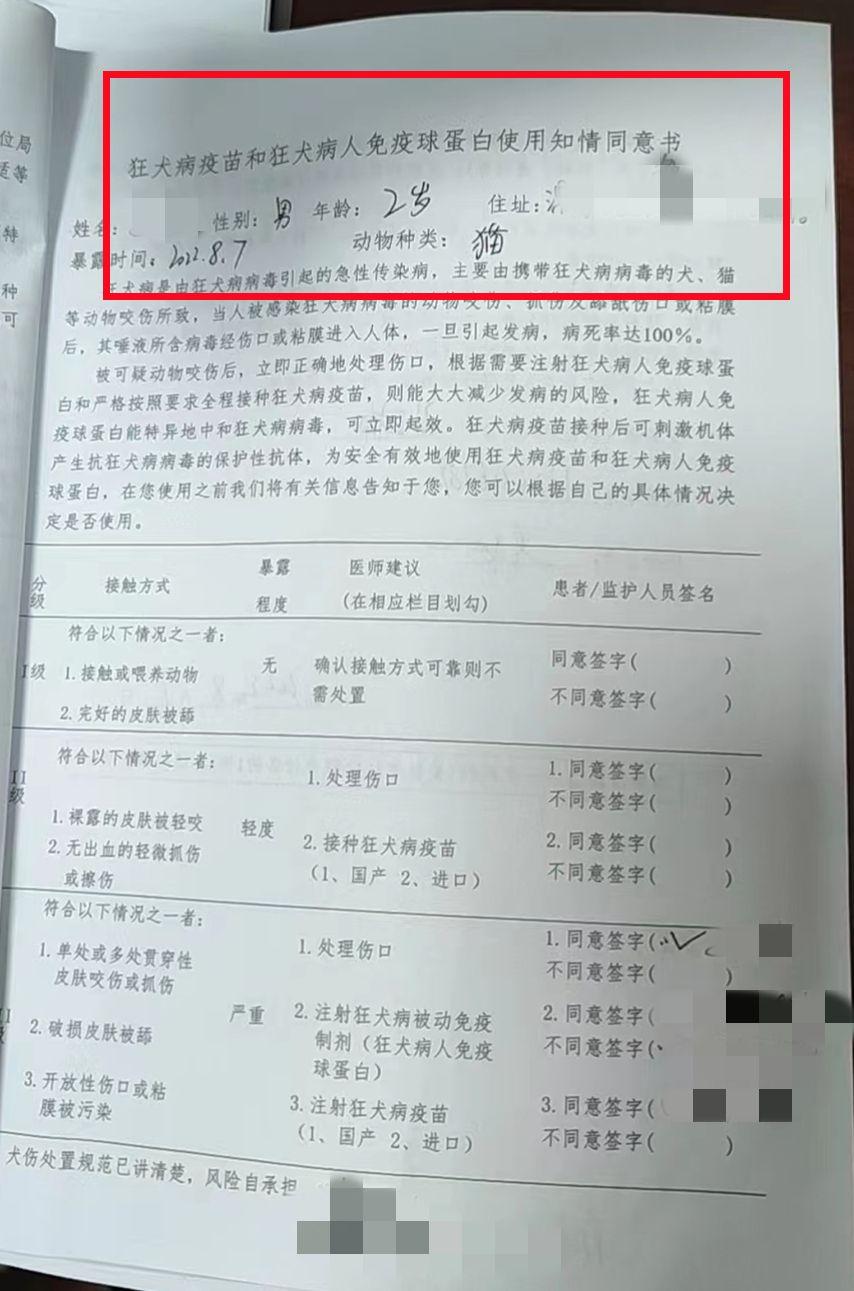 位局
适等
特
种
可
狂犬病疫苗和狂犬病人免疫球蛋白使用知情同意书
姓名: 性别: 男 年龄: 2岁 住址:
暴露时间: 2022.8.7 动物种类: 猫
狂犬病是由狂犬病病毒引起的急性传染病，主要由携带狂犬病病毒的犬、猫
等动物咬伤所致，当人被感染狂犬病病毒的动物咬伤、抓伤及舔舐伤口或粘膜
后，其唾液所含病毒经伤口或粘膜进入人体，一旦引起发病，病死率达100%。
被可疑动物咬伤后，立即正确地处理伤口，根据需要注射狂犬病人免疫球蛋
白和严格按照要求全程接种狂犬病疫苗，则能大大减少发病的风险，狂犬病人免
疫球蛋白能特异地中和狂犬病病毒，可立即起效。狂犬病疫苗接种后可刺激机体
产生抗狂犬病病毒的保护性抗体，为安全有效地使用狂犬病疫苗和狂犬病人免疫
球蛋白，在您使用之前我们将有关信息告知于您，您可以根据自己的具体情况决
定是否使用。
分级 接触方式 暴露程度 医师建议(在相应栏目划勾) 患者/监护人员签名
符合以下情况之一者:
I级 1.接触或喂养动物 无 确认接触方式可靠则不需处置 同意签字( )
2.完好的皮肤被舔 不同意签字( )
II级 符合以下情况之一者: 1.处理伤口 1.同意签字( )
不同意签字( )
1.裸露的皮肤被轻咬 轻度 2.接种狂犬病疫苗 2.同意签字( )
2.无出血的轻微抓伤或擦伤 (1、国产 2、进口) 不同意签字( )
符合以下情况之一者:
1.单处或多处贯穿性皮肤咬伤或抓伤 1.处理伤口 1.同意签字(✓
不同意签字( )
2.破损皮肤被舔 严重 2.注射狂犬病被动免疫制剂(狂犬病人免疫球蛋白) 2.同意签字(
不同意签字(
3.开放性伤口或粘膜被污染 3.注射狂犬病疫苗 3.同意签字(
(1、国产 2、进口) 不同意签字( )
犬伤处置规范已讲清楚，风险自承担